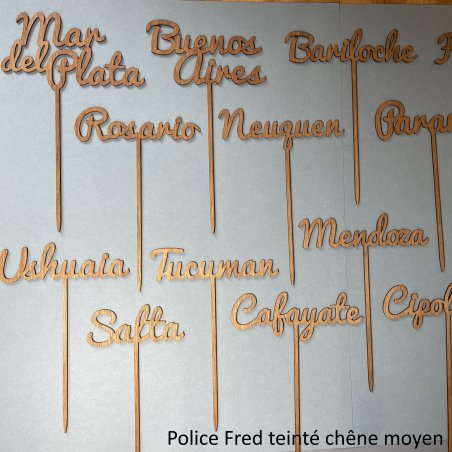 Mar
del Plata
Buenos
Aires
Bariloche
Rosario
Neuquen
Ushuaia
Tucuman
Mendoza
Salta
Cafayate
Police Fred teinté chêne moyen